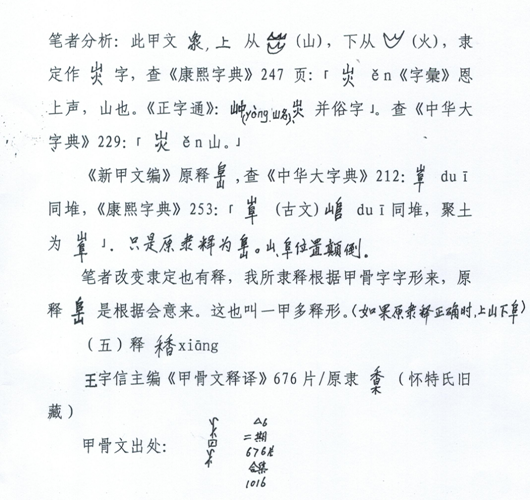 笔者分析：此甲文 , 上 从 (山)，下从 (火)，隶
定作 字，查《康熙字典》247 页：「 ěn《字彙》恩
上声，山也。《正字通》： (yòng.山名) 并俗字」。查《中华大
字典》229：「 ěn山。」
《新甲文编》原释 ,查《中华大字典》212： duī
同堆，《康熙字典》253：「 (古文) duī同堆，聚土
为 」. 只是原隶释为 。山、阜位置颠倒。
笔者改变隶定也有释，我所隶释根据甲骨字字形来，原
释 是根据会意来。这也叫一甲多释形。(如果原隶释正确时,上山下阜)
（五）释 xiāng
王宇信主编《甲骨文释译》676 片/原隶 （怀特氏旧
藏）
甲骨文出处：
二期
676片
合集
1016